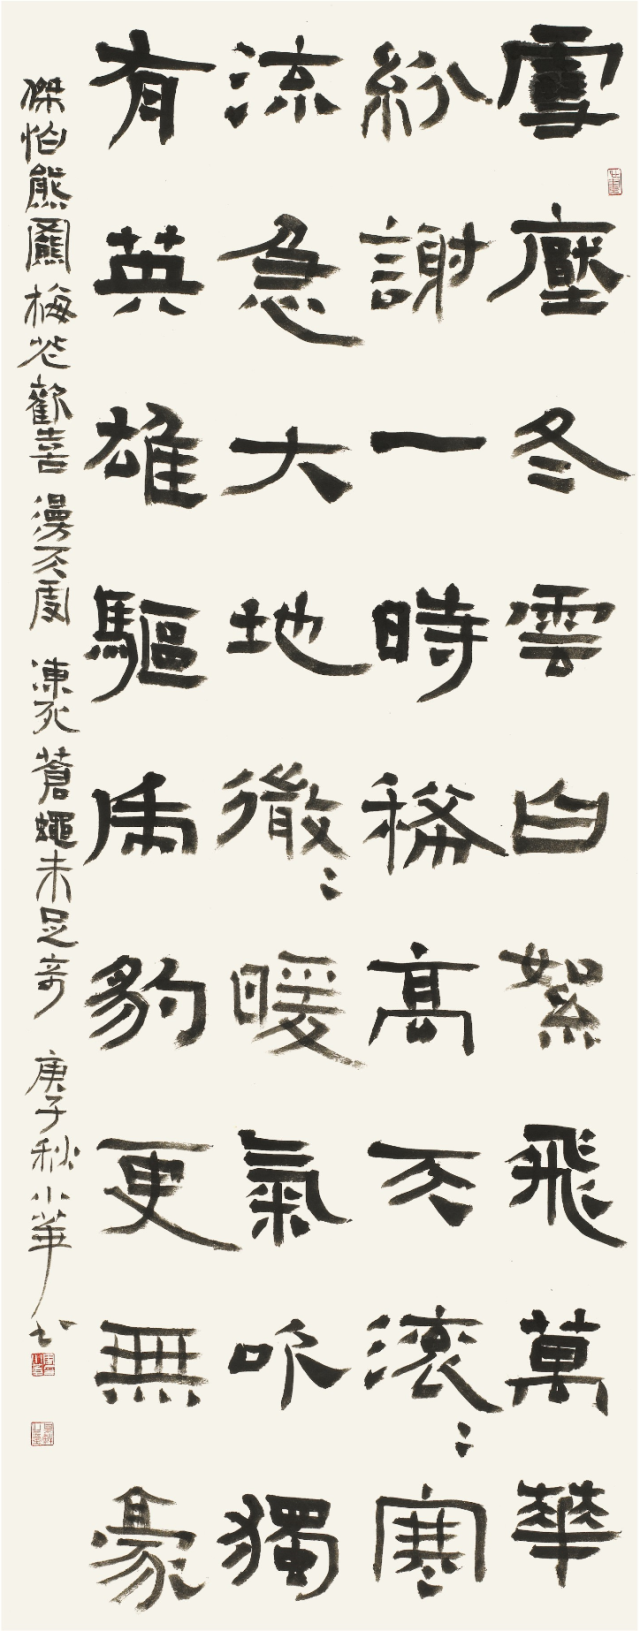 雪壓冬雲白絮飛萬華
紛謝一時稀高天滾〻寒
流急大地微〻暖氣吹獨
有英雄驅虎豹更無豪
傑怕熊羆梅花歡喜漫天雪凍死蒼蠅未足奇庚子秋小華書